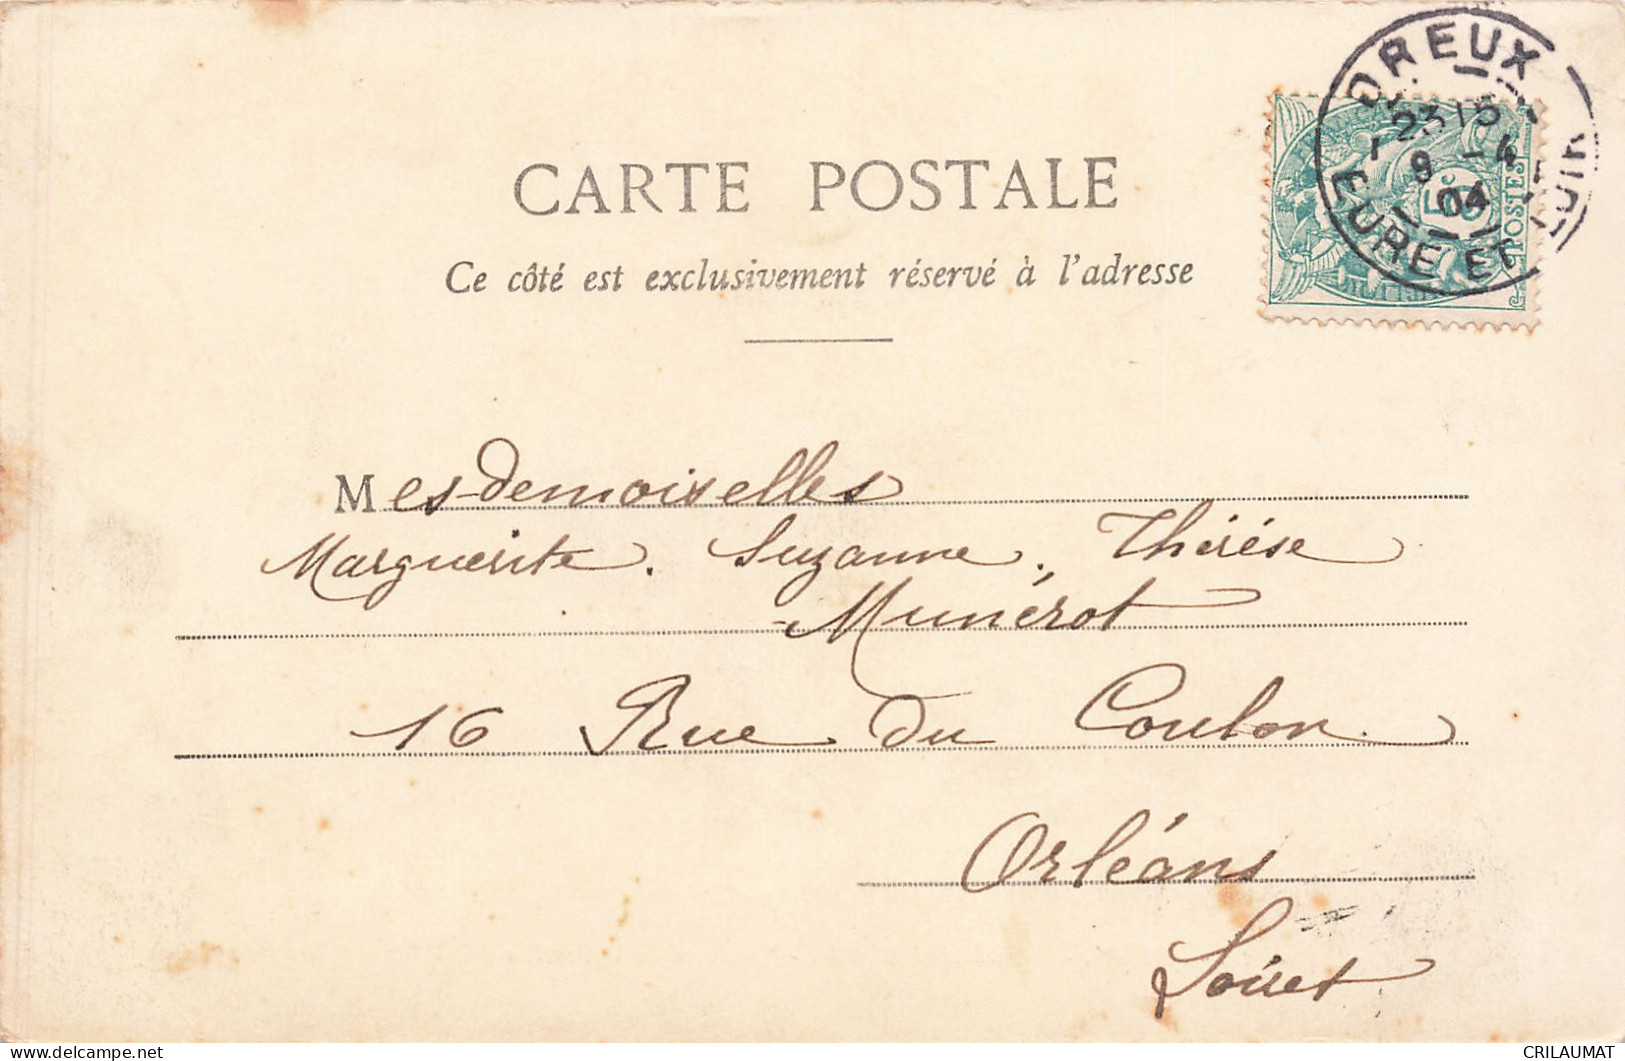 DREUX
23 15
9 -4
04
EURE ET LOIR
5c
POSTES
CARTE POSTALE
Ce côté est exclusivement réservé à l'adresse
Mesdemoiselles
Marguerite. Suzanne. Thérése
Munérot
16 Rue du Coulon.
Orléans
Loiret
CRILAUMAT